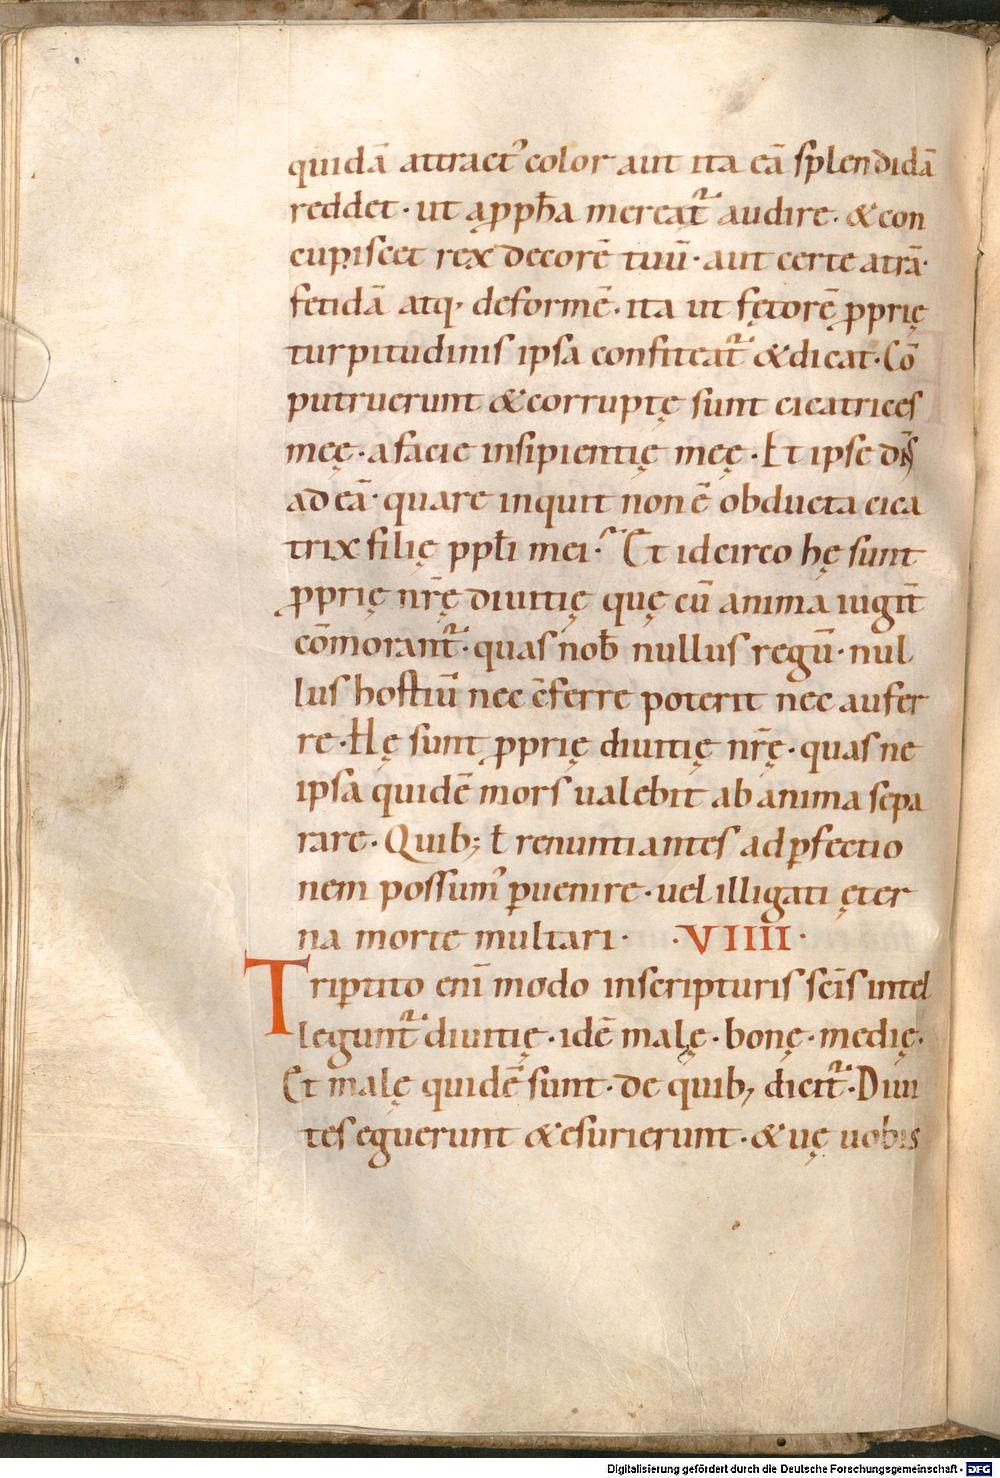 quidā attract᾽ color aut ita eā splendidā
reddet · ut a ꝓpħa mereat᷑ audire · & con
cupiscet rex decorē tuū · aut certe atrā ·
fetidā atq· deformē · ita ut fętorē ꝓprię
turpitudinis ipsa confiteat᷑ & dicat · Cō
putruerunt & corruptę sunt cicatrices
meę · a facie insipientię meę · Et ipse dn̄s
ad eā · quare inquit non ē obducta cica
trix filię ppłi mei · Et idcirco hę sunt
ꝓprię nr̄ę diuitię quę cū anima iugit̄
cōmorant᷑ · quas nob̄ nullus regū · nul
lus hostiū nec c̄ferre poterit nec aufer
re · Hę sunt ꝓprię diuitię nr̄ę · quas ne
ipsa quidē mors ualebit ab anima sepa
rare · Quib; ł renuntiantes ad ꝑfectio
nem possum᾽ ꝑuenire · uel illigati ęter
na morte multari · · VIIII ·
Triꝑtito eni̅ modo in scripturis sc̄is intel
legunt᷑ diuitię · idē malę · bonę · medię ·
Et malę quidē sunt · de quib, dicit᷑ · Diui
tes eguerunt & esurierunt · & uę uobis
Digitalisierung gefördert durch die Deutsche Forschungsgemeinschaft - DFG